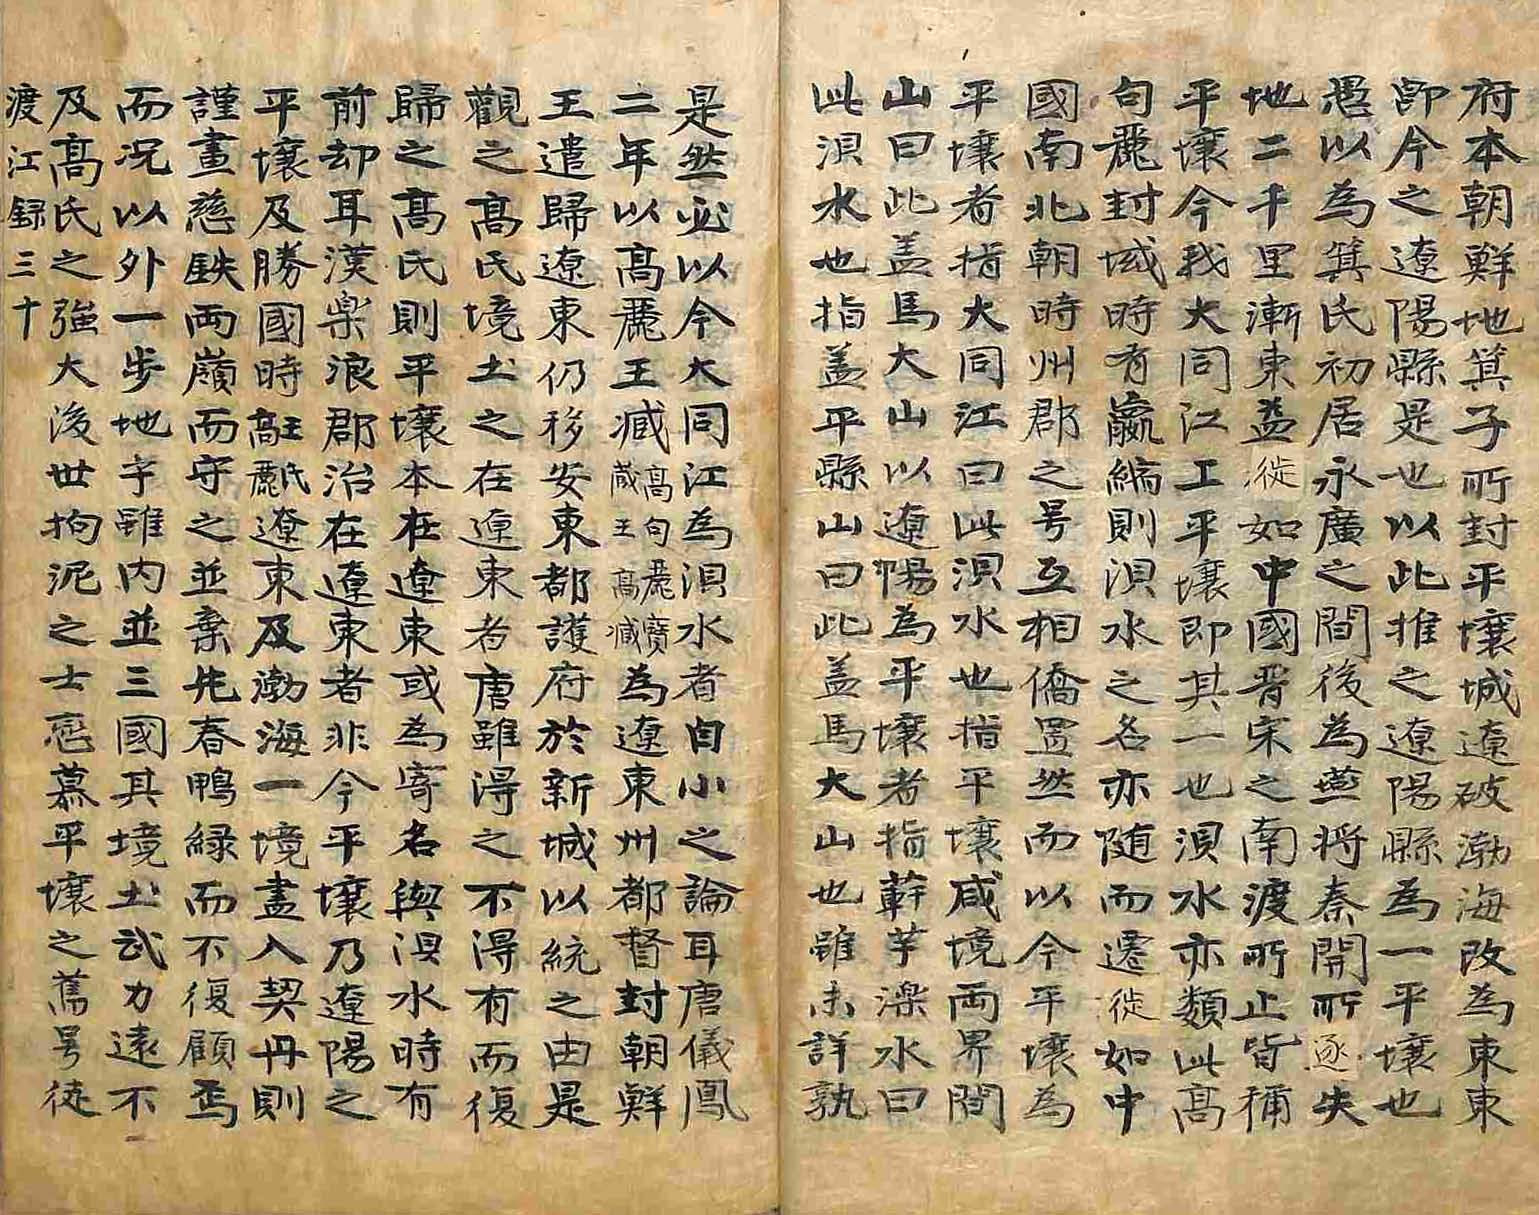 府本朝鮮地箕子所封平壤城遼破渤海改為東東
卽今之遼陽縣是也以此推之遼陽縣為一平壤也
愚以為箕氏初居永廣之間後為燕將秦開所逐失
地二千里漸東益徙如中國晋宋之南渡所止皆稱
平壤今我大同江工平壤即其一也浿水亦類此高
句麗封域時有贏縮則浿水之名亦随而遷徙如中
國南北朝時州郡之号互相僑置然而以今平壤為
平壤者指大同江曰此浿水也指平壤咸境両界間
山曰此盖馬大山以遼陽為平壤者指蓒芋濼水曰
此浿水也指盖平縣山曰此盖馬大山也雖未詳孰
是然必以今大同江為浿水者自小之論耳唐儀鳳
二年以高麗王臧高句麗寶臧王高臧為遼東州都督封朝鮮
王遣歸遼東仍移安東都護府於新城以統之由是
觀之高氏境土之在遼東者唐雖得之不得有而復
歸之高氏則平壤本在遼東或為寄名與浿水時有
前却耳漢樂浪郡治在遼東者非今平壤乃遼陽之
平壤及勝國時王氏高麗遼東及渤海一境盡入契丹則
謹畫慈鉄両嶺而守之並棄先春鴨緑而不復顧焉
而况以外一步地乎雖内並三國其境土武力遠不
及高氏之強大後世拘泥之士恋慕平壤之舊号徒
渡江録三十